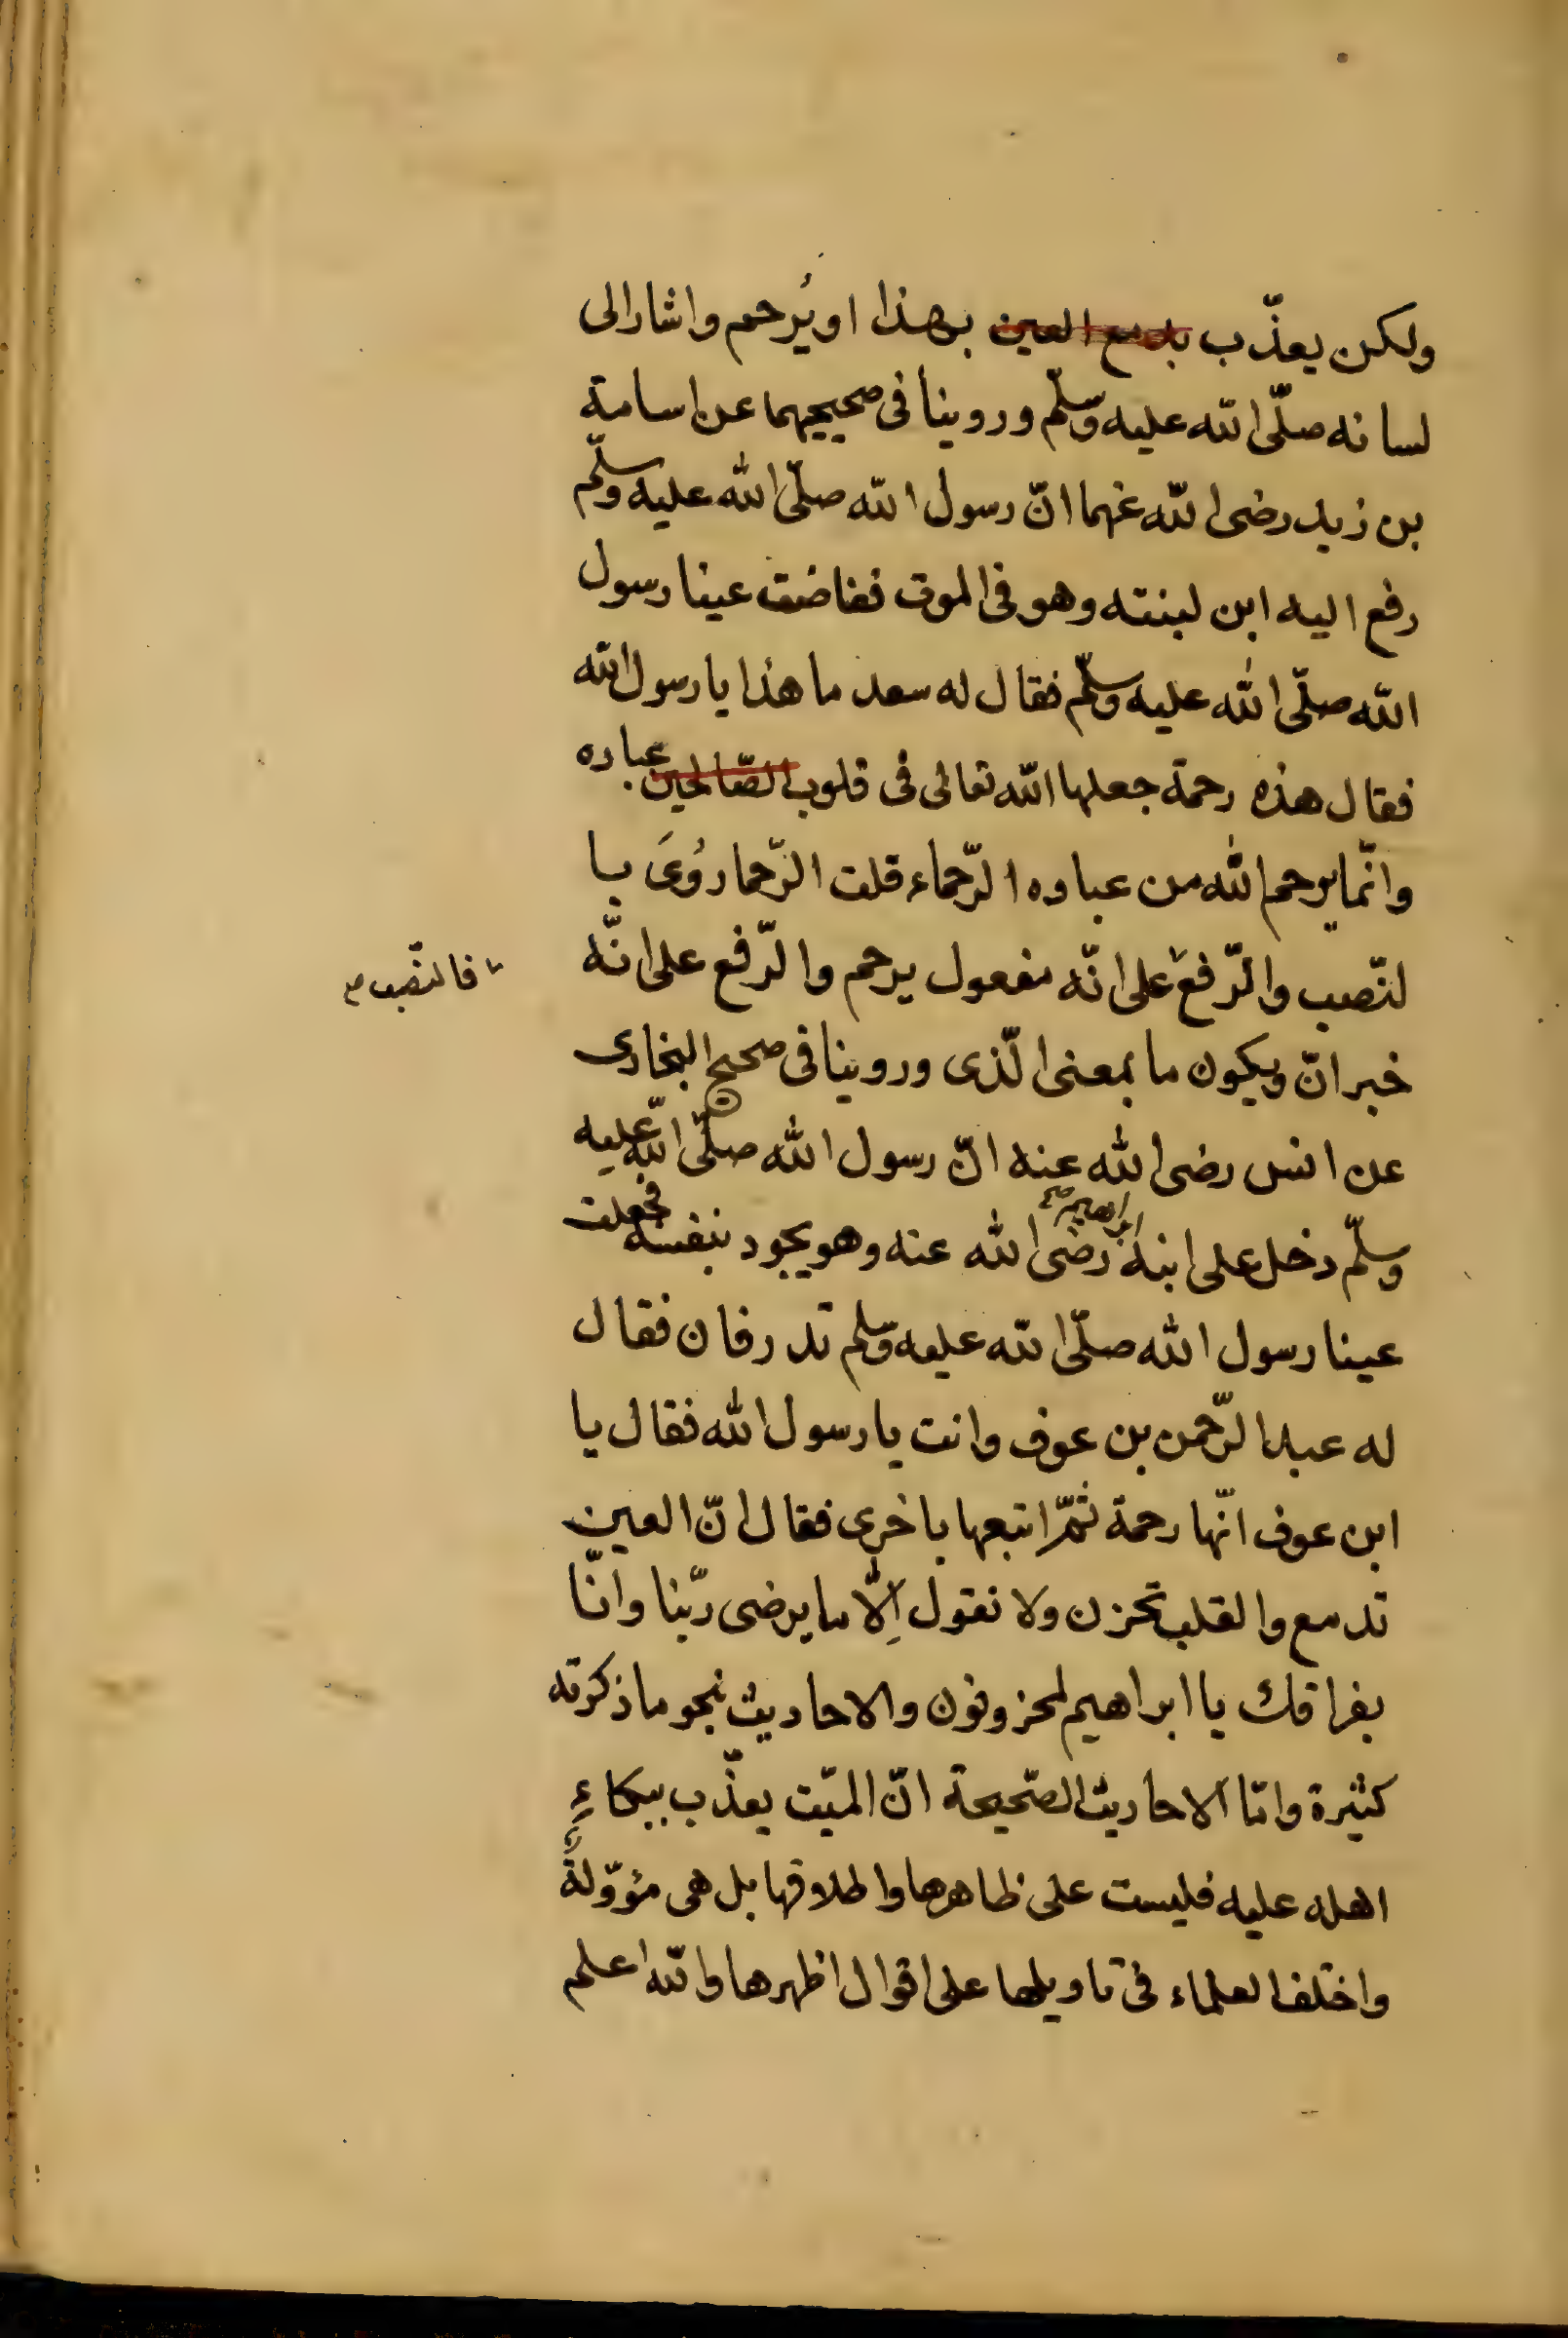 ولكن يعذّب بدمع العين بهذا او يُرحم واشار الى
لسانه صلّى الله عليه وسلّم وروينا فى صحيحيهما عن اسامة
بن زيد رضى الله عنهما انّ رسول الله صلّى الله عليه وسلّم
رفع اليه ابن لبنته وهو فى الموت ففاضت عينا رسول
الله صلّى الله عليه وسلّم فقال له سعد ما هذا يا رسول الله
فقال هذه رحمة جعلها الله تعالى فى قلوب الصّالحين عباده
وانّما يرحم الله من عباده الرّحماء قلت الرّحما رُوِىَ با
لنّصب والرّفع على انّه مفعول يرحم والرّفع على انّه
فالنّصب
خبر انّ ويكون ما بمعنى الّذى وروينا فى صحيح البخارى
عن انس رضى الله عنه انّ رسول الله صلّى الله عليه
وسلّم دخل على ابنه ابراهيم رضى الله عنه وهو يجود بنفسه فجعلت
عينا رسول الله صلّى الله عليه وسلّم تدرفان فقال
له عبد الرّحمن بن عوف وانت يا رسول الله فقال يا
ابن عوف انّها رحمة ثمّ اتبعها باخرى فقال انّ العين
تدمع والقلب تحزن ولا نقول اِلّا ما يرضى ربّنا وانّا
بفراقك يا ابراهيم لمحزونون والاحاديث بنحو ما ذكرته
كثيرة وامّا الاحاديث الصّحيحة انّ الميّت يعذّب ببكاءِ
اهله عليه فليست على ظاهرها واطلاقها بل هى مؤوّلةٌ
واختلف العلماء فى تاويلها على اقوال اظهرها والله اعلم